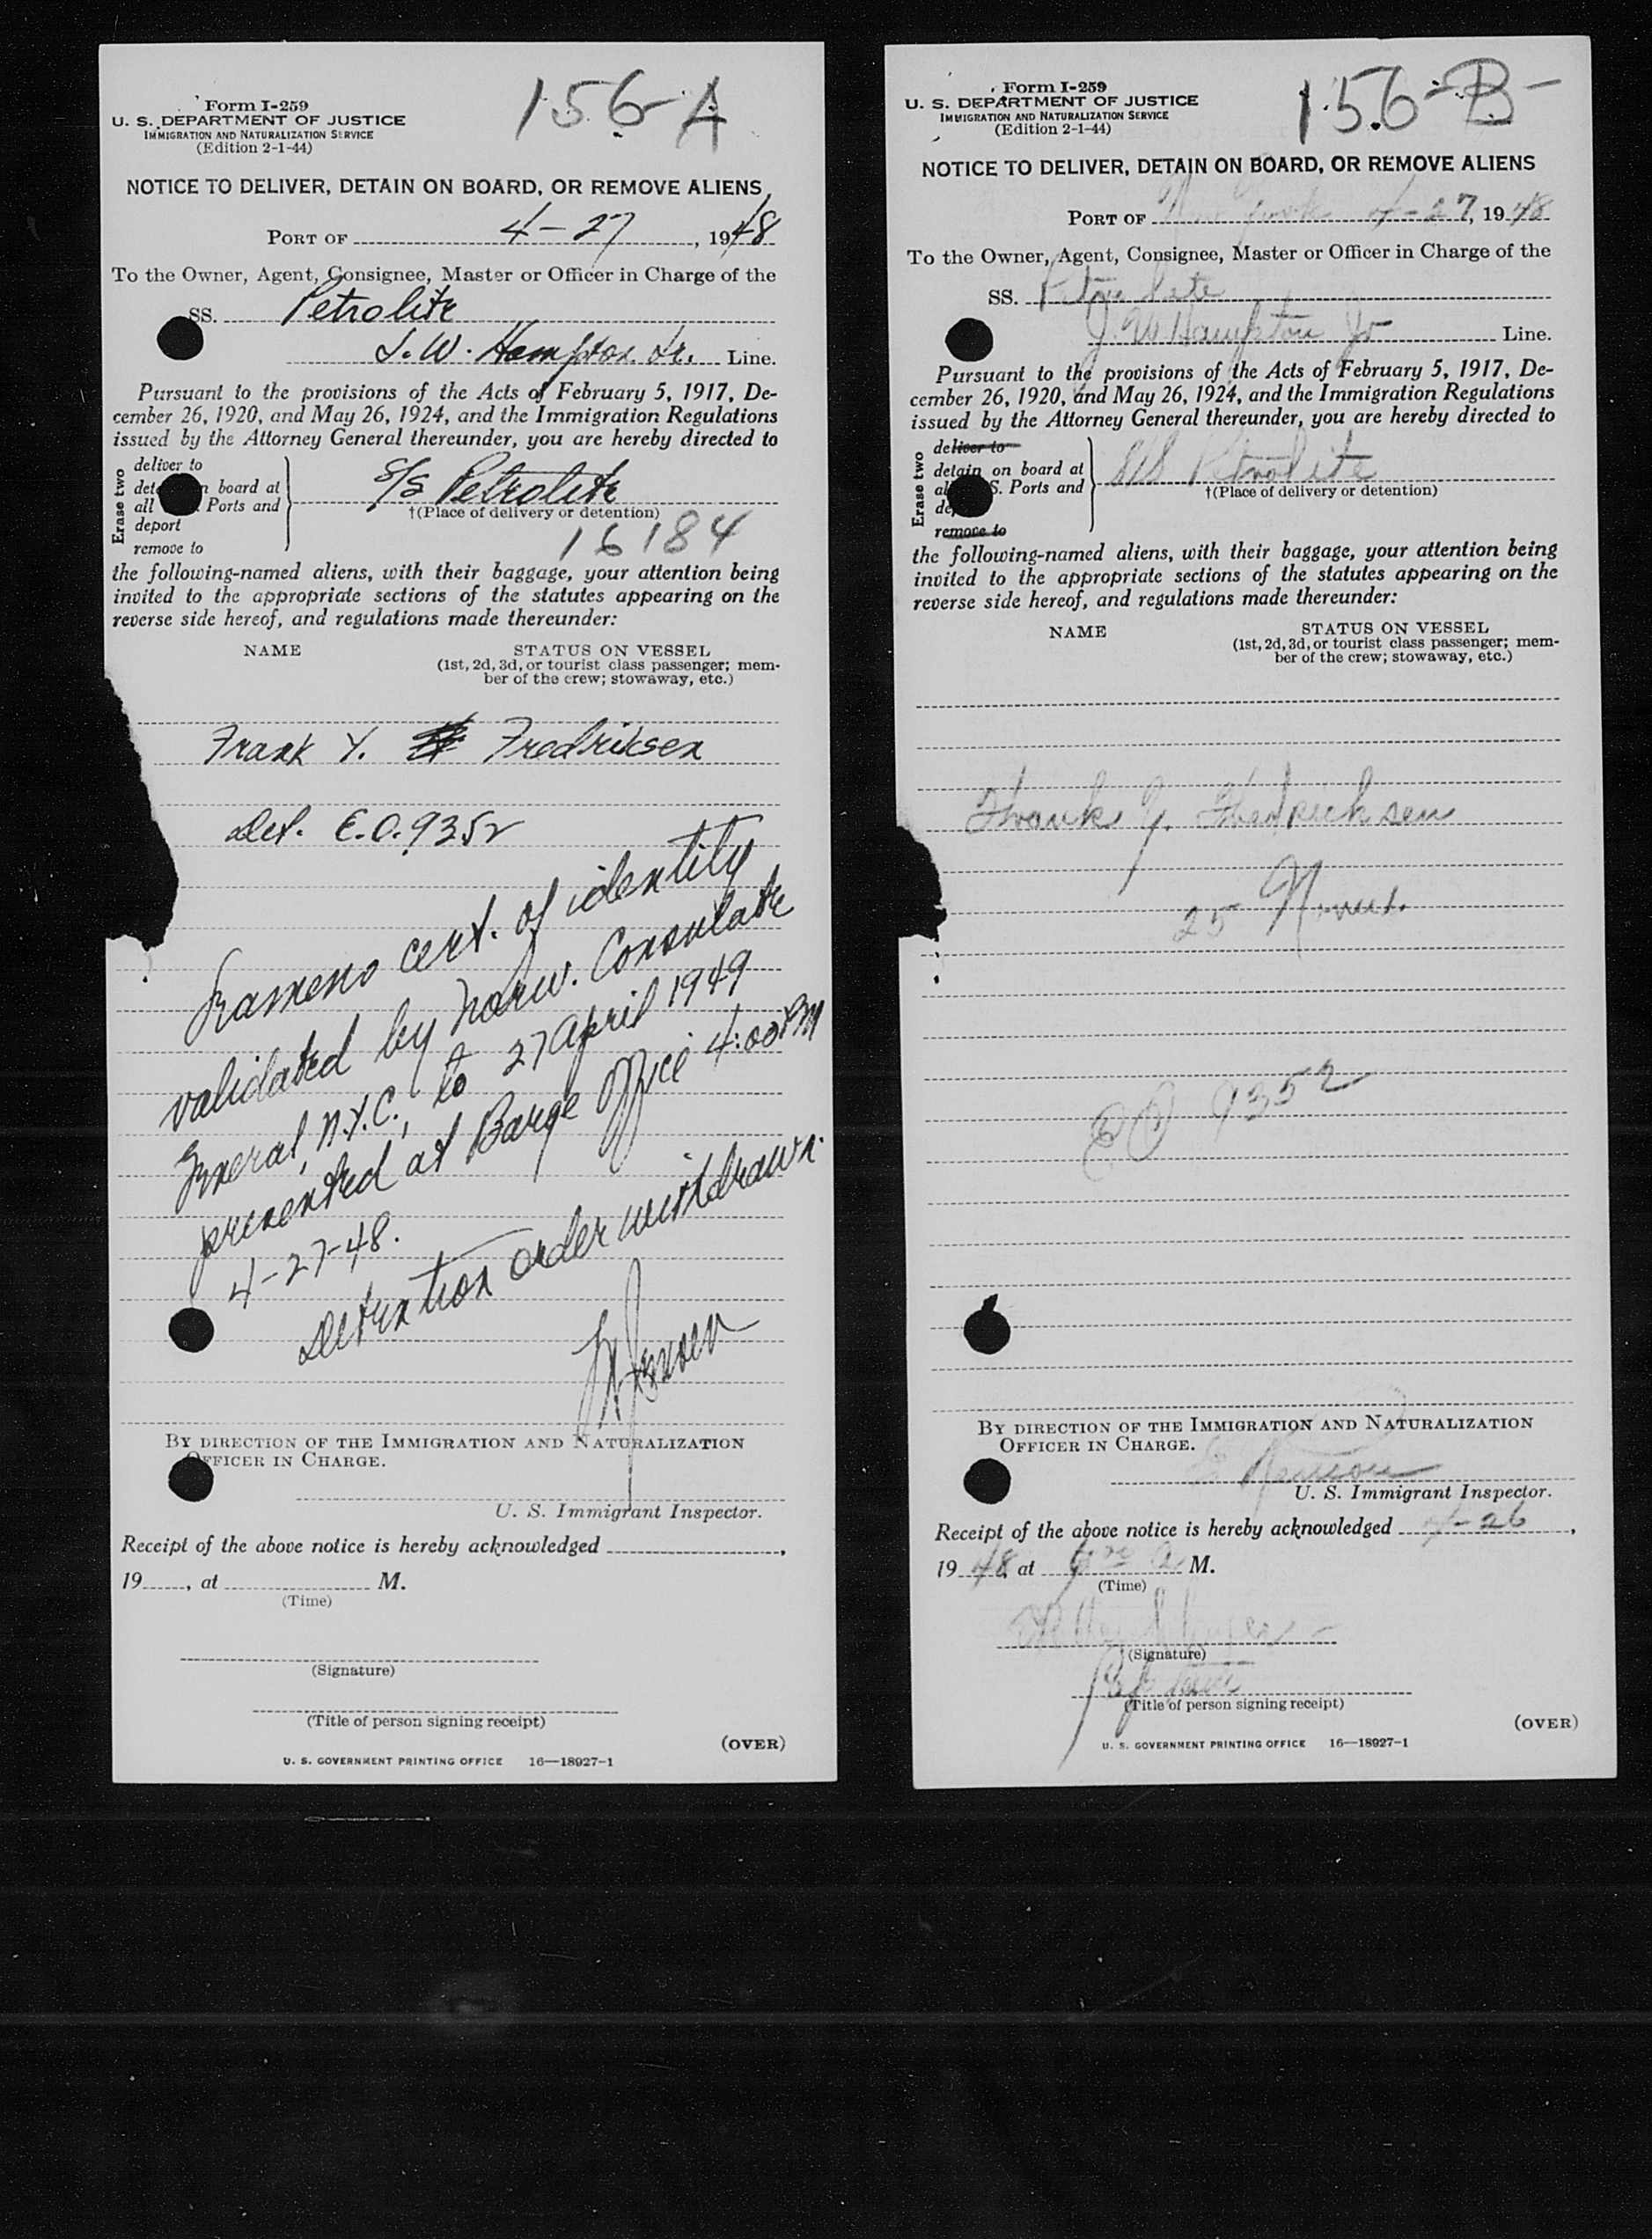 156-A
Form I-259
U. S. DEPARTMENT OF JUSTICE
IMMIGRATION AND NATURALIZATION SERVICE
(Edition 2-1-44)
NOTICE TO DELIVER, DETAIN ON BOARD, OR REMOVE ALIENS
PORT OF 4-27, 1948
To the Owner, Agent, Consignee, Master or Officer in Charge of the
SS. Petrolite
J. W. Hampton Jr. Line.
Pursuant to the provisions of the Acts of February 5, 1917, De-
cember 26, 1920, and May 26, 1924, and the Immigration Regulations
issued by the Attorney General thereunder, you are hereby directed to
Erase two
deliver to
board at
all Ports and
deport
remove to
S/S Petrolite
†(Place of delivery or detention)
16184
the following-named aliens, with their baggage, your attention being
invited to the appropriate sections of the statutes appearing on the
reverse side hereof, and regulations made thereunder:
NAME
STATUS ON VESSEL
(1st, 2d, 3d, or tourist class passenger; mem-
ber of the crew; stowaway, etc.)
Frank Y. Fredriksen
Det. E.O. 9352
cert. of identity
validated by Norw. Consulate
General, N.Y.C., to 27 April 1949
presented at Barge Office 4:00 PM
4-27-48.
Detention order withdrawn.
BY DIRECTION OF THE IMMIGRATION AND NATURALIZATION
OFFICER IN CHARGE.
U. S. Immigrant Inspector.
Receipt of the above notice is hereby acknowledged
19 , at M.
(Time)
(Signature)
(Title of person signing receipt)
(OVER)
U. S. GOVERNMENT PRINTING OFFICE 16—18927-1
156-B-
Form I-259
U. S. DEPARTMENT OF JUSTICE
IMMIGRATION AND NATURALIZATION SERVICE
(Edition 2-1-44)
NOTICE TO DELIVER, DETAIN ON BOARD, OR REMOVE ALIENS
PORT OF New York 4-27, 1948
To the Owner, Agent, Consignee, Master or Officer in Charge of the
SS. Petrolite
J. W. Hampton Jr Line.
Pursuant to the provisions of the Acts of February 5, 1917, De-
cember 26, 1920, and May 26, 1924, and the Immigration Regulations
issued by the Attorney General thereunder, you are hereby directed to
Erase two
deliver to
detain on board at
S. Ports and
remove to
S/S Petrolite
†(Place of delivery or detention)
the following-named aliens, with their baggage, your attention being
invited to the appropriate sections of the statutes appearing on the
reverse side hereof, and regulations made thereunder:
NAME
STATUS ON VESSEL
(1st, 2d, 3d, or tourist class passenger; mem-
ber of the crew; stowaway, etc.)
Frank Y. Fredricksen
25
EO 9352
BY DIRECTION OF THE IMMIGRATION AND NATURALIZATION
OFFICER IN CHARGE.
U. S. Immigrant Inspector.
Receipt of the above notice is hereby acknowledged 4-26,
1948, at M.
(Time)
(Signature)
Captain
(Title of person signing receipt)
(OVER)
U. S. GOVERNMENT PRINTING OFFICE 16—18927-1